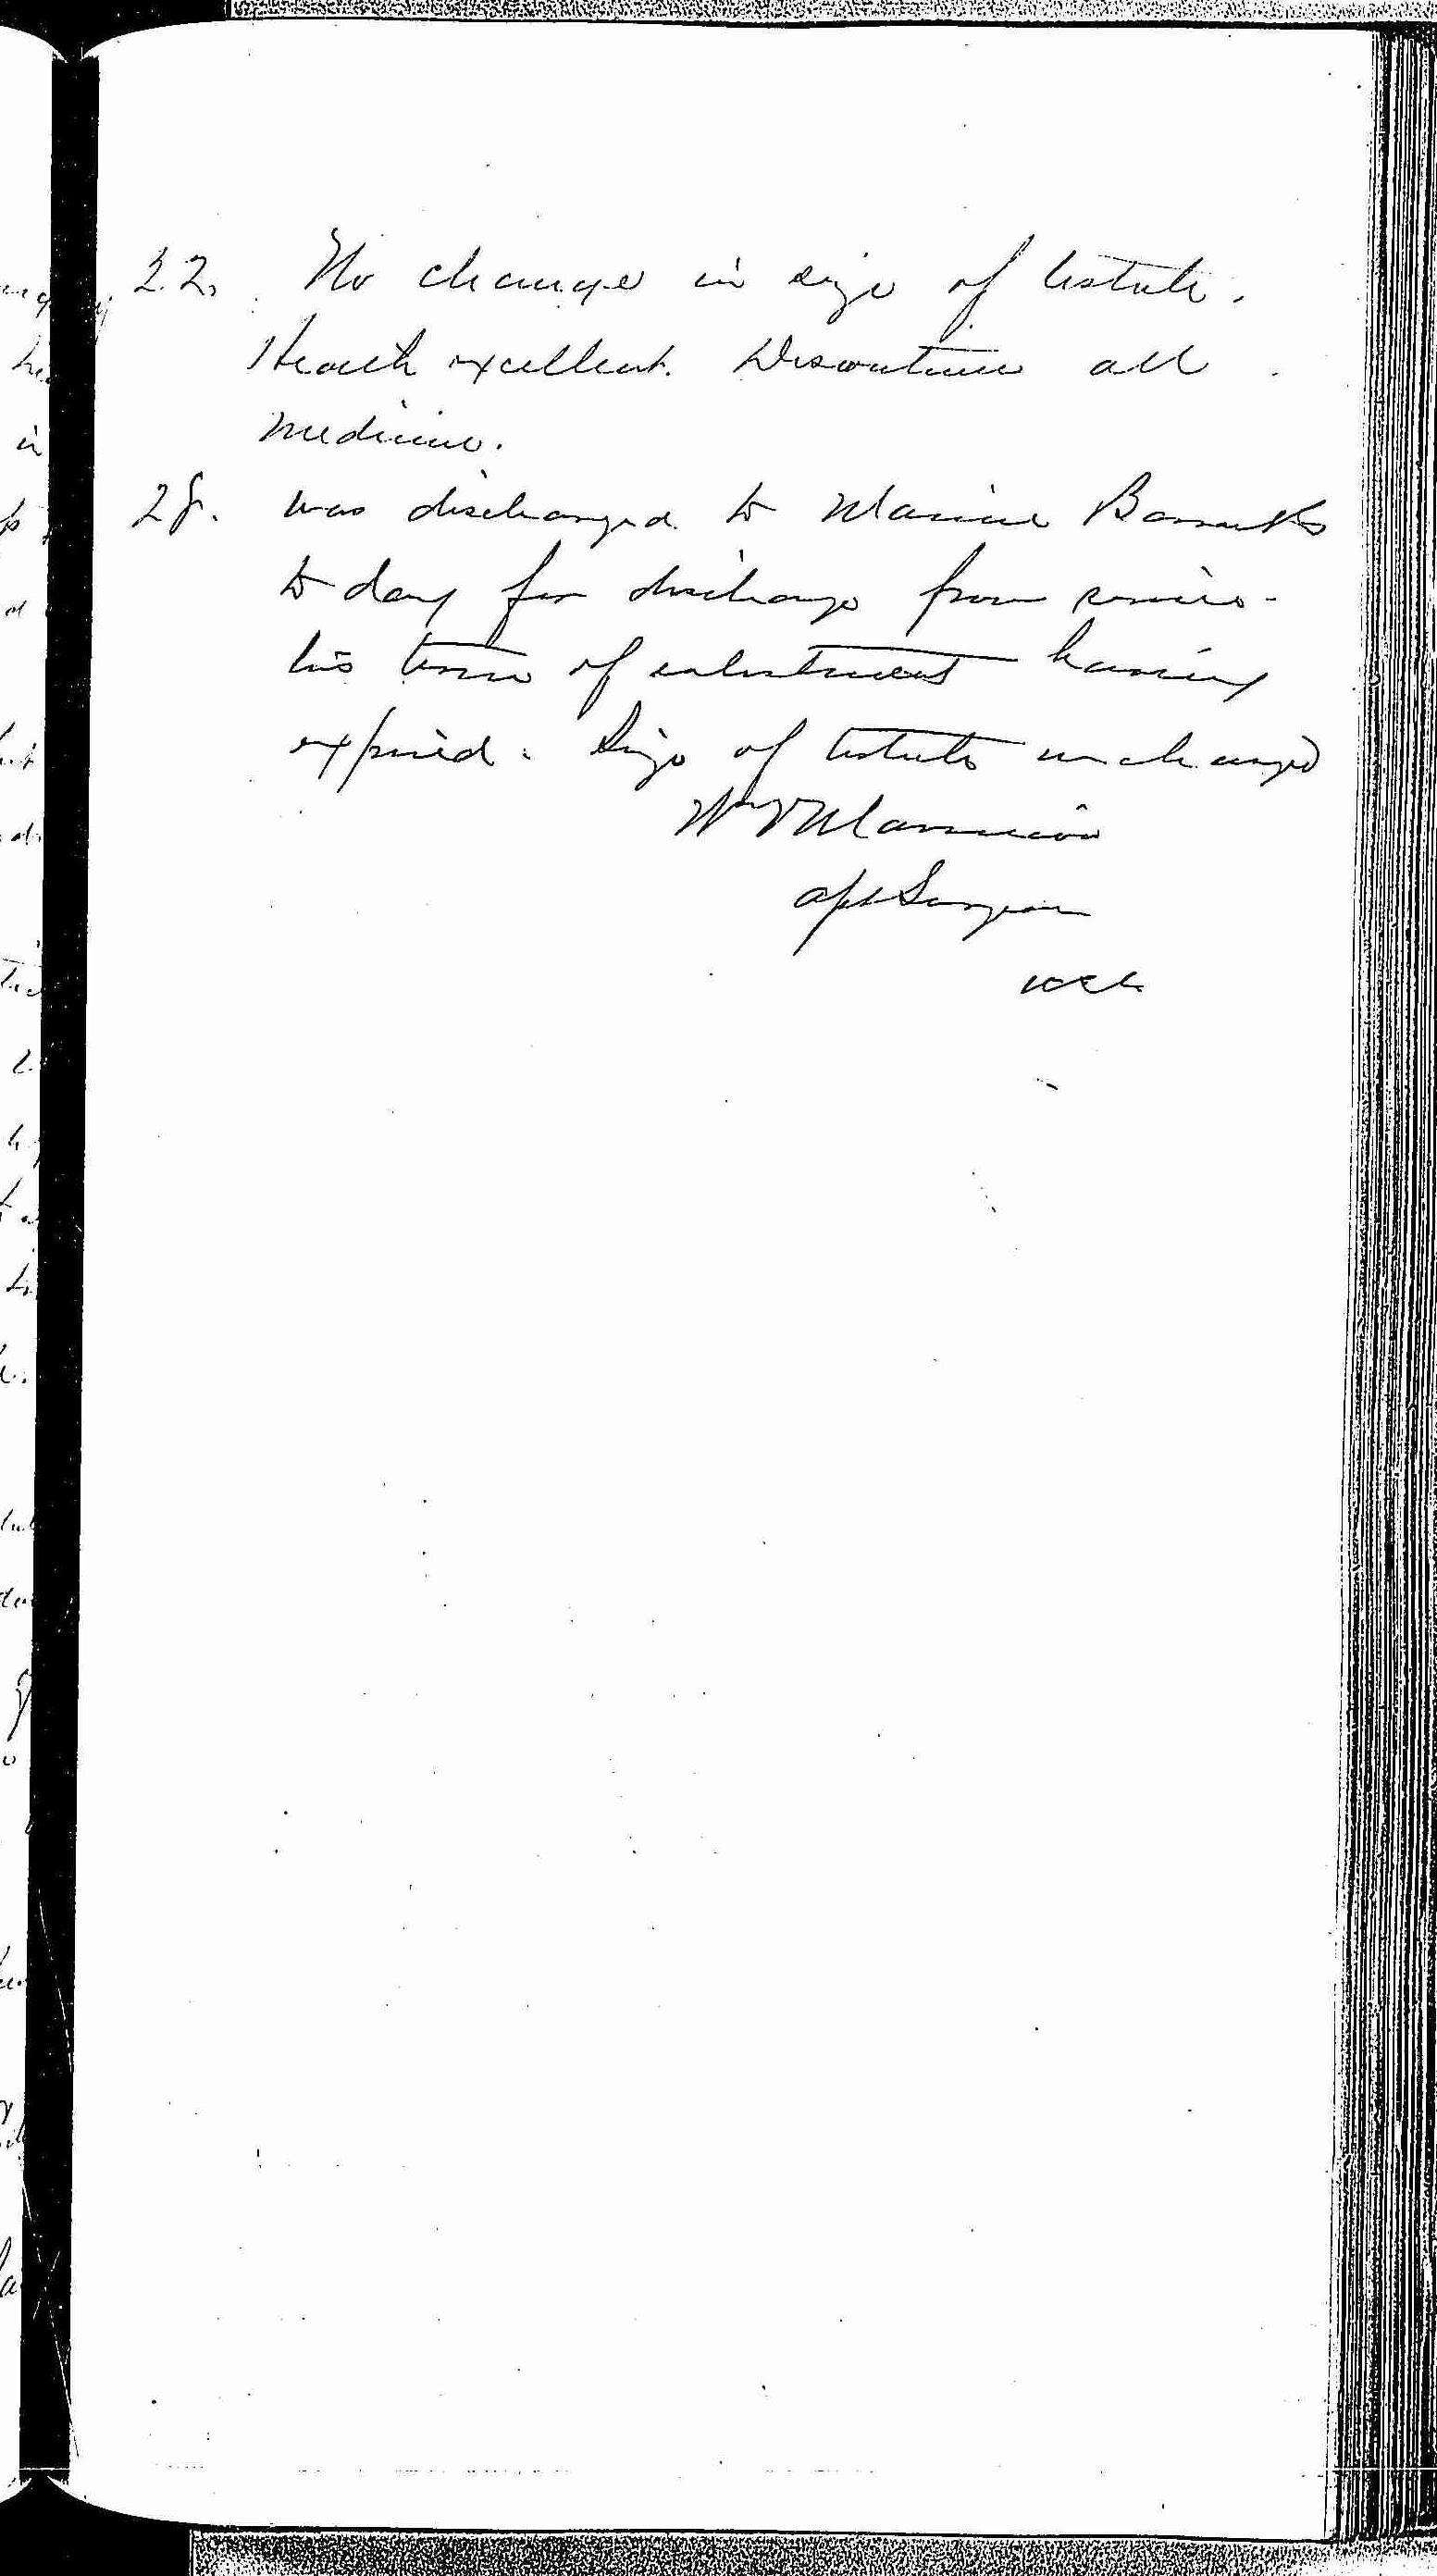 22. No change in size of testicle.
Health excellent. Discontinue all
medicine.
28. Was discharged to Marine Barracks
to day for discharge from service -
his term of enlistment having
expired. Size of testicle unchanged
Surgeon